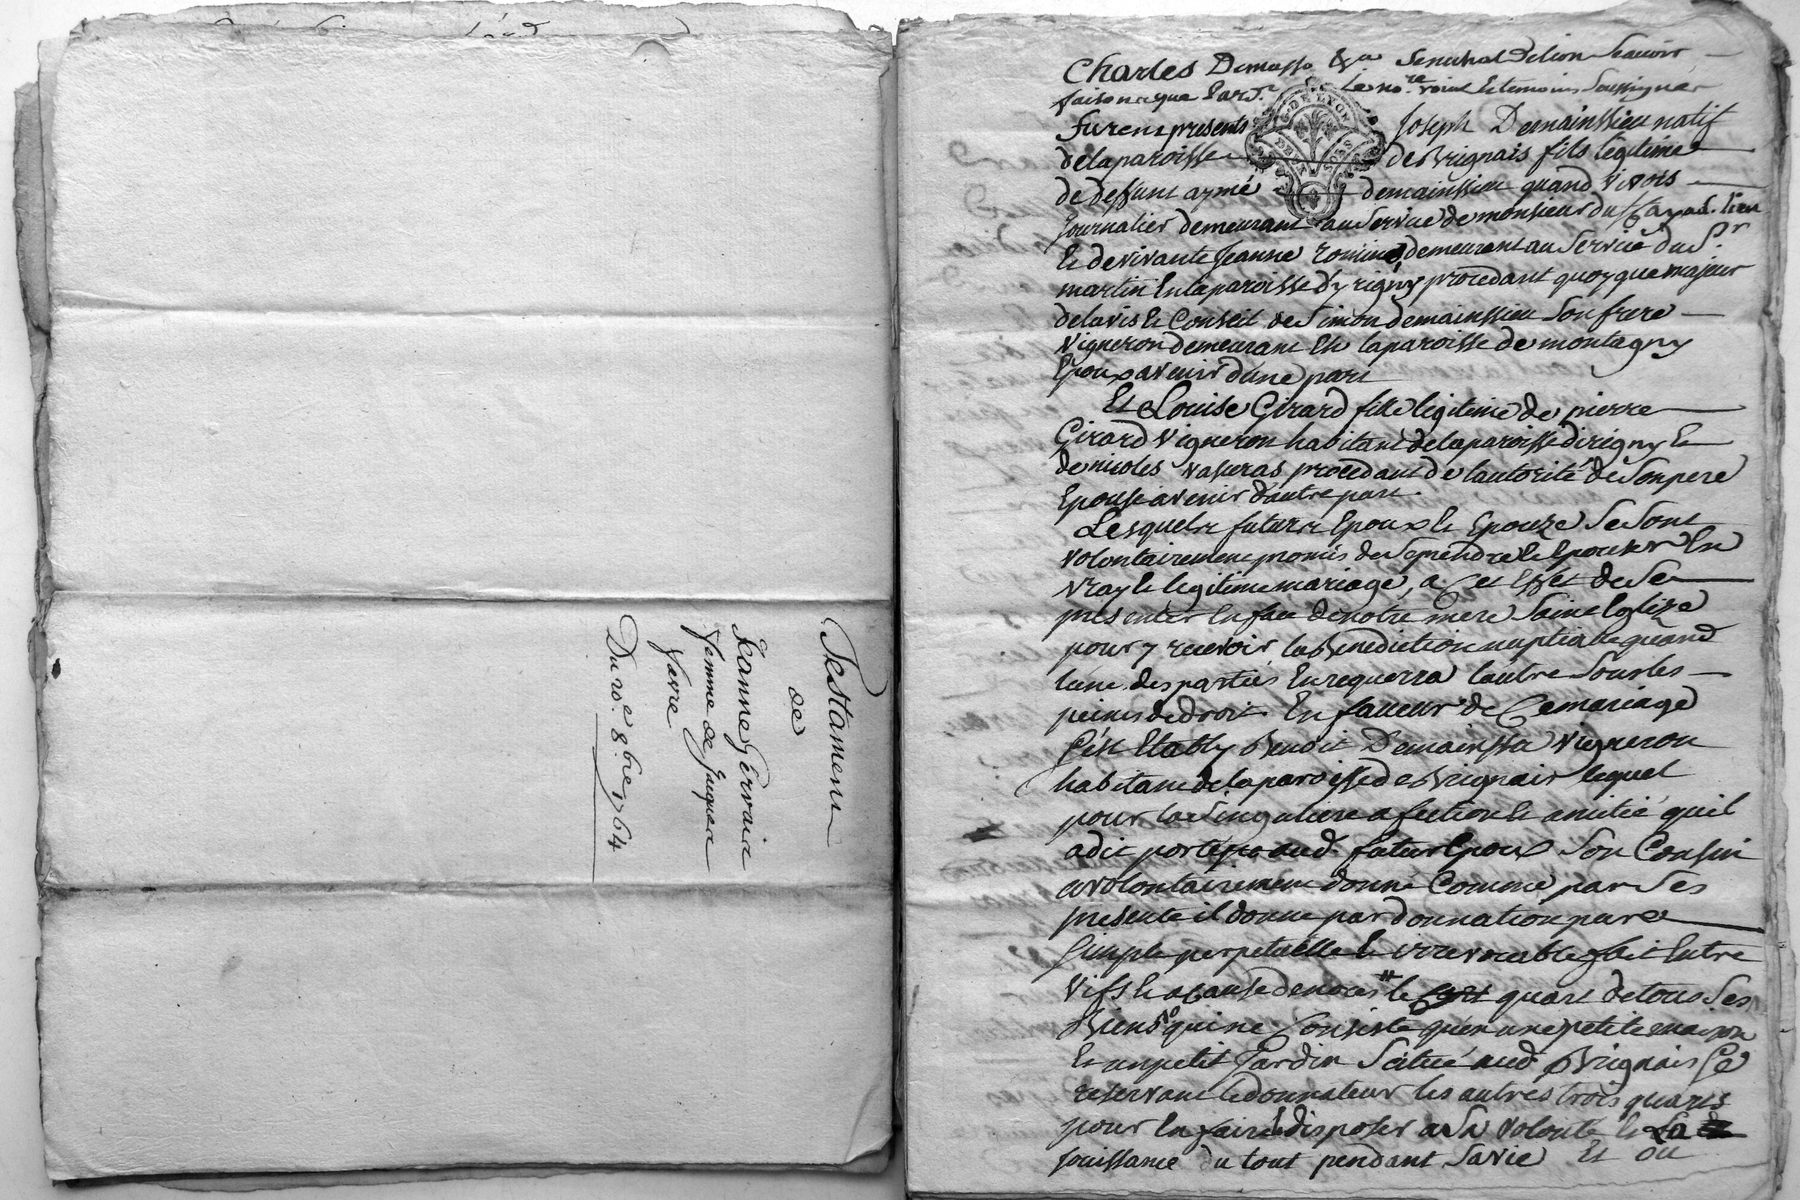 Testament
de
Jeanne Gervaire
femme de Jacques
Vevre
Du 20e. 8.bre 1764
Charles Demasso &a Senechal Delion Scavoir
faisons que Pard.t Le no.re roial Et temoins Soussignés
furent presents Joseph Demainssieu natif
G. DE LYON
DE 2 SOLS
delaparoisse de Brignais fils legitime
de deffunt aymé demainssieu quand vivois
Journalier demeurant au Service de monsieur du
Et de vivante Jeanne demeurant au Service du S.r
martin En laparoisse d'yrigny procedant quoy que majeur
delavis Et Conseil de Simon demainssieu Son frere
Vigneron demeurant En laparoisse de montagny
Epoux avenir dune part
Et Louise Girard fille legitime de pierre
Girard Vigneron habitant delaparoisse dirigny Et
de nicoles procedant de lautorité de Son pere
Epouse avenir dautre part.
Lesquels futurs Epoux Et Epouze Se Sont
volontairement promis de Se prendre Et Epouser En
vray Et legitime mariage, a Cet Effet de Se
presenter En face de notre mere Sainte Eglize
pour y recevoir la Benediction nuptialle quand
lune des parties En requerra lautre Sous les
peines de droit En faveur de Ce mariage
S'est Etably Benoit Demainssieu Vigneron
habitant delaparoisse de Brignais lequel
pour la Singuliere afection Et amitié quil
a dit porter aud. futur Epoux Son Cousin
a volontairement donné Comme par Ses
presente il donne par donnation pure
Simple perpetuelle Et irrevocable fait Entre
Vifs Et a Cause de noces le quart de tous Ses
Biens qui ne Consiste qu'en une petite maison
Et un petit Jardin Scitué aud. Brignais Se
reservant le donnateur les autres trois quarts
pour En faire Et disposer a Sa volonté Et la
Jouissance du tout pendant Sa vie Et ou